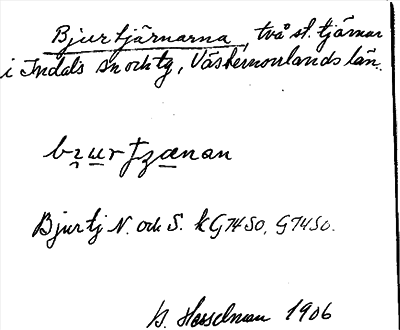 Bjurtjärnarna, två st. tjärnar
i Indals sn och tg, Västernorrlands län.
bzurtzænan
Bjurtj N. och S. k G74SO, G74SO.
B. Hesselman 1906